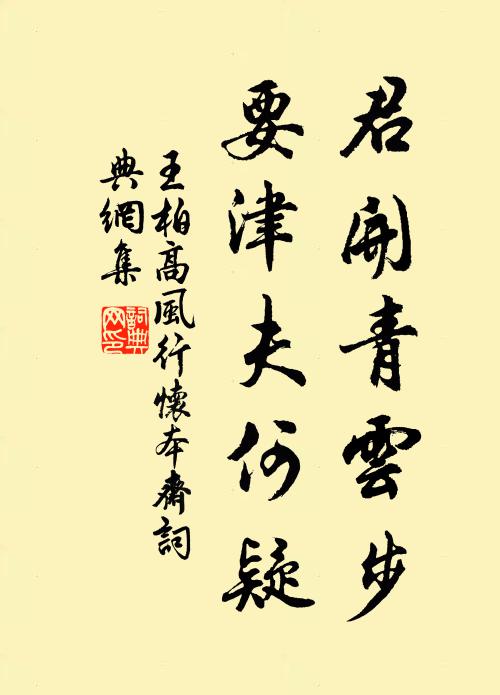 君開青雲步
要津夫何疑
王柏高風行懷本齋詞
典網集
詞典
网印